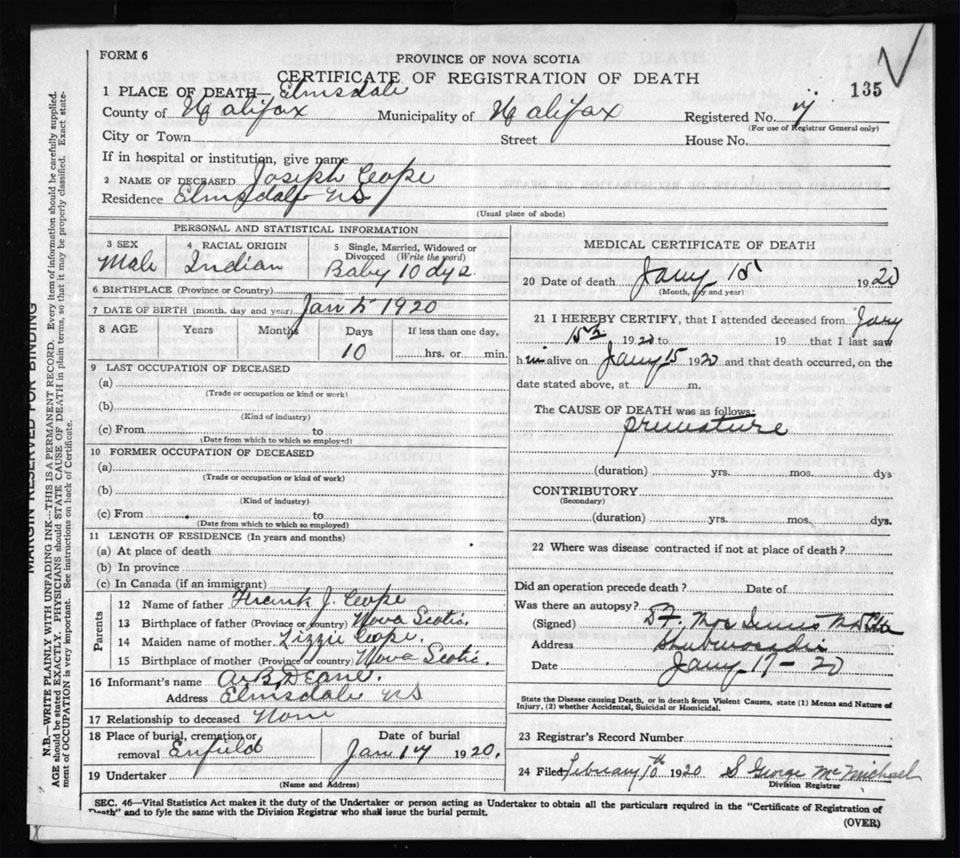 FORM 6
PROVINCE OF NOVA SCOTIA
CERTIFICATE OF REGISTRATION OF DEATH
135
1 PLACE OF DEATH— Elmsdale
County of Halifax Municipality of Halifax Registered No.
(For use of Registrar General only)
City or Town Street House No.
If in hospital or institution, give name
2 NAME OF DECEASED Joseph Cope
Residence Elmsdale NS
(Usual place of abode)
PERSONAL AND STATISTICAL INFORMATION
3 SEX 4 RACIAL ORIGIN 5 Single, Married, Widowed or Divorced (Write the word)
Male Indian Baby 10 dys.
6 BIRTHPLACE (Province or Country)
7 DATE OF BIRTH (month, day and year) Jan 5 1920
8 AGE Years Months Days If less than one day,
10 hrs. or min.
9 LAST OCCUPATION OF DECEASED
(a)
(Trade or occupation or kind or work)
(b)
(Kind of industry)
(c) From to
(Date from which to which so employed)
10 FORMER OCCUPATION OF DECEASED
(a)
(Trade or occupation or kind of work)
(b)
(Kind of industry)
(c) From to
(Date from which to which so employed)
11 LENGTH OF RESIDENCE (In years and months)
(a) At place of death
(b) In province
(c) In Canada (if an immigrant)
Parents
12 Name of father Frank J. Cope
13 Birthplace of father (Province or country) Nova Scotia.
14 Maiden name of mother Lizzie Cope.
15 Birthplace of mother (Province or country) Nova Scotia.
16 Informant's name Deane.
Address Elmsdale NS
17 Relationship to deceased None
18 Place of burial, cremation or removal Enfield
Date of burial
Jan 17 1920.
19 Undertaker
(Name and Address)
MEDICAL CERTIFICATE OF DEATH
20 Date of death Jany 1920
(Month, day and year)
21 I HEREBY CERTIFY, that I attended deceased from Jany
15th 1920 to 19 that I last saw
him alive on Jany 15 1920 and that death occurred, on the
date stated above, at m.
The CAUSE OF DEATH was as follows:
premature
(duration) yrs. mos. dys
CONTRIBUTORY
(Secondary)
(duration) yrs. mos. dys.
22 Where was disease contracted if not at place of death?
Did an operation precede death? Date of
Was there an autopsy?
(Signed)
Address Shubenacadie
Date Jany 17-20
State the Disease causing Death, or in death from Violent Causes, state (1) Means and Nature of
Injury, (2) whether Accidental, Suicidal or Homicidal.
23 Registrar's Record Number
24 Filed February 10th 1920 S George McMichael
Division Registrar
SEC. 46—Vital Statistics Act makes it the duty of the Undertaker or person acting as Undertaker to obtain all the particulars required in the "Certificate of Registration of
Death" and to fyle the same with the Division Registrar who shall issue the burial permit.
(OVER)
MARGIN RESERVED FOR BINDING
N.B.—WRITE PLAINLY WITH UNFADING INK—THIS IS A PERMANENT RECORD. Every item of information should be carefully supplied.
AGE should be stated EXACTLY. PHYSICIANS should STATE CAUSE OF DEATH in plain terms, so that it may be properly classified. Exact state-
ment of OCCUPATION is very important. See instructions on back of Certificate.